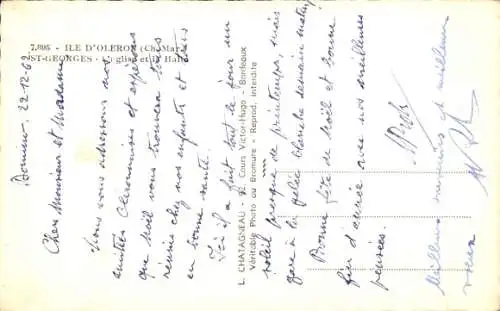 7.805 - ILE D'OLERON (Ch.-Mar.)
ST-GEORGES - L'Eglise et la Halle
L. CHATAGNEAU - 92, Cours Victor-Hugo - Bordeaux
Véritable Photo au Bromure - Reprod. interdite
22-12-62
Cher Monsieur et Madame
Nous vous adressons nos
amitiés Oleronaises et espérons
que Noël vous trouvera tous
réunis chez nos enfants et tous
en bonne santé.
Ici il a fait tout le jour un
soleil presque de printemps, mais
gare à la gelée blanche demain matin
Bonne fête de Noël et bonne
fin d'année avec nos meilleures
pensées.
Meilleurs souvenirs et meilleurs
voeux